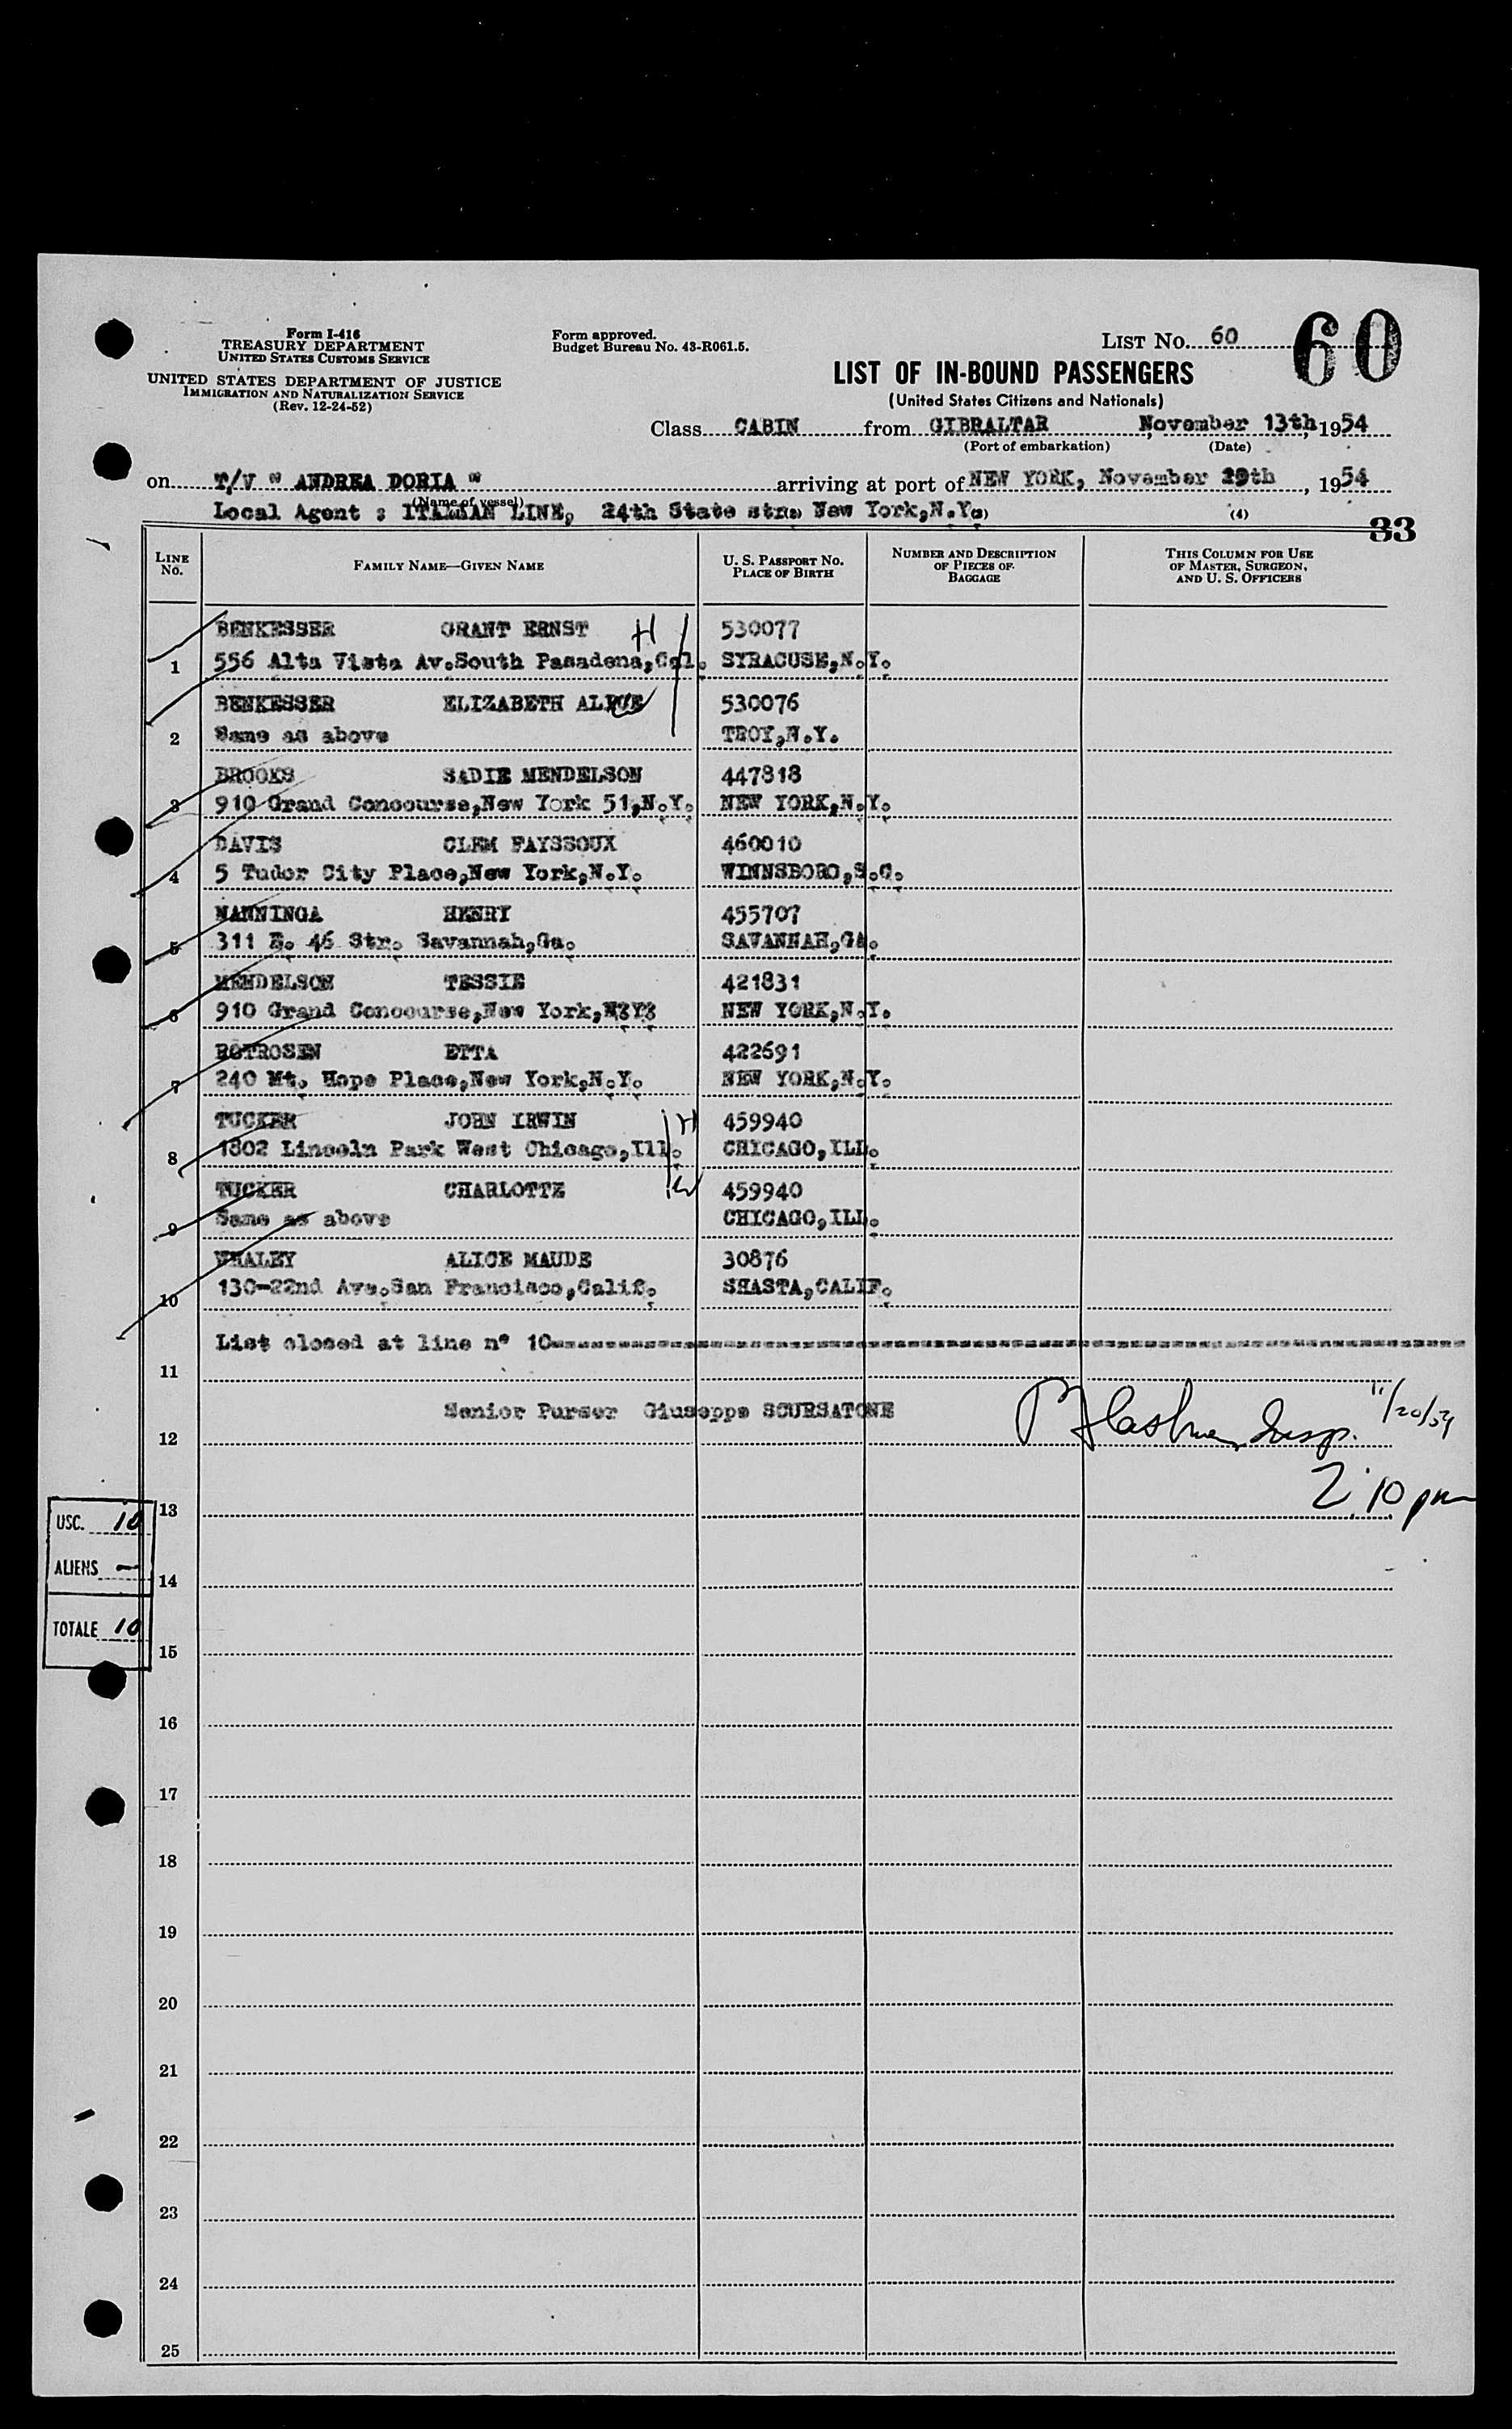 Form I-416
TREASURY DEPARTMENT
UNITED STATES CUSTOMS SERVICE
UNITED STATES DEPARTMENT OF JUSTICE
IMMIGRATION AND NATURALIZATION SERVICE
(Rev. 12-24-52)
Form approved.
Budget Bureau No. 43-R061.5.
LIST NO. 60
60
LIST OF IN-BOUND PASSENGERS
(United States Citizens and Nationals)
Class CABIN from GIBRALTAR November 13th, 1954
(Port of embarkation) (Date)
on T/V " ANDREA DORIA " arriving at port of NEW YORK, November 20th, 1954
(Name of vessel)
Local Agent : ITALIAN LINE, 24th State str. New York,N.Y.
(4)
33
LINE NO. FAMILY NAME—GIVEN NAME U. S. PASSPORT NO. PLACE OF BIRTH NUMBER AND DESCRIPTION OF PIECES OF BAGGAGE THIS COLUMN FOR USE OF MASTER, SURGEON, AND U. S. OFFICERS
BENKESSER GRANT ERNST H 530077
1 556 Alta Vista Av.South Pasadena,Cal. SYRACUSE,N.Y.
BENKESSER ELIZABETH 530076
2 Same as above TROY,N.Y.
BROOKS SADIE MENDELSON 447818
3 910 Grand Concourse,New York 51,N.Y. NEW YORK,N.Y.
DAVIS CLEM FAYSSOUX 460010
4 5 Tudor City Place,New York,N.Y. WINNSBORO,S.C.
NANNINGA HENRY 455707
5 311 E. 46 Str. Savannah,Ga. SAVANNAH,GA.
MENDELSON TESSIE 421831
6 910 Grand Concourse,New York,N8Y8 NEW YORK,N.Y.
ROTROSEN ETTA 422691
7 240 Mt. Hope Place,New York,N.Y. NEW YORK,N.Y.
TUCKER JOHN IRWIN H 459940
8 1802 Lincoln Park West Chicago,Ill. CHICAGO,ILL.
TUCKER CHARLOTTE W 459940
9 Same as above CHICAGO,ILL.
WHALEY ALICE MAUDE 30876
10 130-22nd Ave.San Francisco,Calif. SHASTA,CALIF.
List closed at line n° 10
11
Senior Purser Giuseppe SCURSATONE
12 Insp. 11/20/54
2:10 pm
13
USC. 10
ALIENS —
14
TOTALE 10
15
16
17
18
19
20
21
22
23
24
25